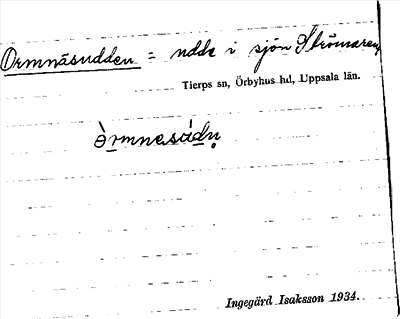 Ormnäsudden = udde i sjön Strömaren
Tierps sn, Örbyhus hd, Uppsala län.
òrmnesúdn̥
Ingegärd Isaksson 1934.